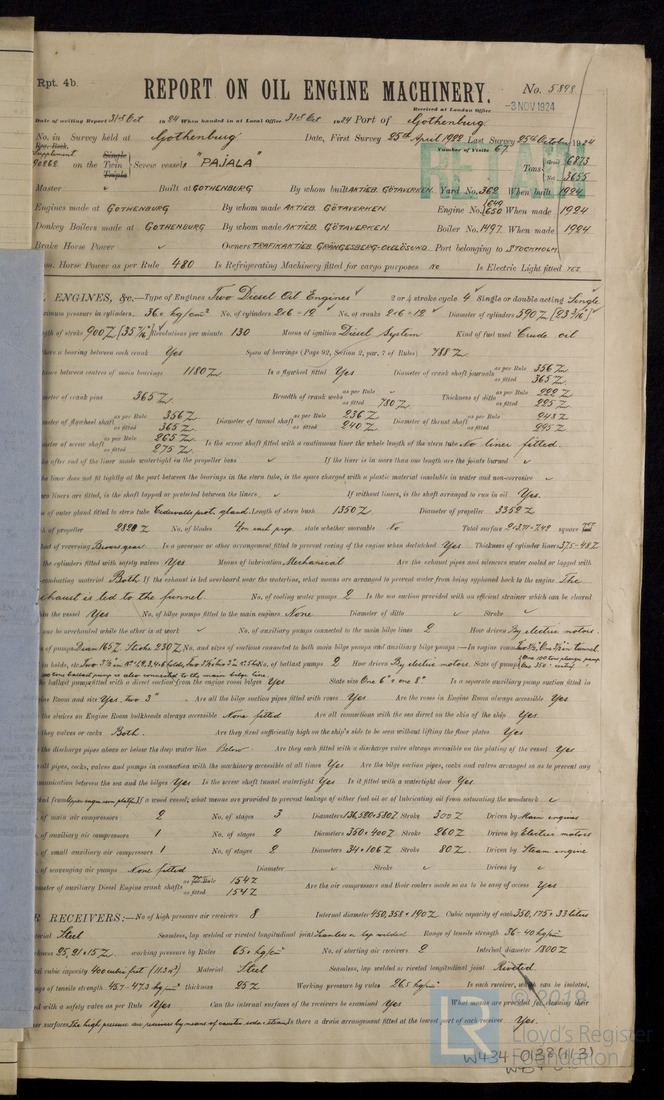 Rpt. 4b.
REPORT ON OIL ENGINE MACHINERY. No. 5898
Received at London Office -3 NOV 1924
Date of writing Report 31st Oct 1924 When handed in at Local Office 31st Oct 1924 Port of Gothenburg.
No. in Survey held at Gothenburg Date, First Survey 25th April 1922 Last Survey 25th October 1924
Reg. Book. Supplement Number of Visits 67.
90262 on the Single Twin Triple Screw vessels "PAJALA" Tons Gross 6873 Net 3655
RETAIN
Master ✓ Built at GOTHENBURG By whom built AKTIEB. GÖTAVERKEN. Yard No. 362 When built 1924
Engines made at GOTHENBURG By whom made AKTIEB. GÖTAVERKEN Engine No. 649 650 When made 1924
Donkey Boilers made at GOTHENBURG By whom made AKTIEB. GÖTAVERKEN. Boiler No. 1497. When made 1924
Brake Horse Power ✓ Owners TRAFIKAKTIEB GRÄNGESBERG-OXELÖSUND. Port belonging to STOCKHOLM.
Nom. Horse Power as per Rule 480 Is Refrigerating Machinery fitted for cargo purposes NO Is Electric Light fitted YES.
ENGINES, &c.—Type of Engines Two Diesel Oil Engines 2 or 4 stroke cycle 4 Single or double acting Single
pressure in cylinders 36 kg/cm² No. of cylinders 2×6 - 12 No. of cranks 2×6 - 12 Diameter of cylinders 590 Z (23 3/16")
of stroke 900 Z (35 7/16") Revolutions per minute 130 Means of ignition Diesel System Kind of fuel used Crude oil
there a bearing between each crank Yes Span of bearings (Page 92, Section 2, par. 7 of Rules) 788 Z
between centres of main bearings 1180 Z Is a flywheel fitted Yes Diameter of crank shaft journals as per Rule 356 Z as fitted 365 Z
of crank pins 365 Z. Breadth of crank webs as per Rule ✓ as fitted 780 Z Thickness of ditto as per Rule 222 Z as fitted 225 Z
of flywheel shaft as per Rule 356 Z as fitted 365 Z Diameter of tunnel shaft as per Rule 236 Z as fitted 240 Z Diameter of thrust shaft as per Rule 248 Z as fitted 295 Z
of screw shaft as per Rule 265 Z as fitted 275 Z Is the screw shaft fitted with a continuous liner the whole length of the stern tube No liner fitted.
after end of the liner made watertight in the propeller boss ✓ If the liner is in more than one length are the joints burned ✓
liner does not fit tightly at the part between the bearings in the stern tube, is the space charged with a plastic material insoluble in water and non-corrosive ✓
liners are fitted, is the shaft lapped or protected between the liners ✓ If without liners, is the shaft arranged to run in oil Yes.
of outer gland fitted to stern tube Cedervalls prot. gland. Length of stern bush 1350 Z. Diameter of propeller 3352 Z
of propeller 2320 Z No. of blades 4 on each prop. state whether moveable No Total surface
of reversing Brows gear Is a governor or other arrangement fitted to prevent racing of the engine when declutched Yes Thickness of cylinder liners 37.5-48 Z
the cylinders fitted with safety valves Yes Means of lubrication Mechanical Are the exhaust pipes and silencers water cooled or lagged with
conducting material Both. If the exhaust is led overboard near the waterline, what means are arranged to prevent water from being syphoned back to the engine The
exhaust is led to the funnel. No. of cooling water pumps 2 Is the sea suction provided with an efficient strainer which can be cleared
the vessel Yes No. of bilge pumps fitted to the main engines None Diameter of ditto ✓ Stroke ✓
one be overhauled while the other is at work ✓ No. of auxiliary pumps connected to the main bilge lines 2 How driven By electric motors.
of pumps Diam 165 Z. Stroke 230 Z No. and sizes of suctions connected to both main bilge pumps and auxiliary bilge pumps :—In engine room
in holds, etc. No. of ballast pumps 2 How driven By electric motors. Sizes of pumps
one ballast pump is also connected to the main bilge line
ballast pumps fitted with a direct suction from the engine room bilges Yes State size One 6" & one 8" Is a separate auxiliary pump suction fitted in
Room and size Yes. two 3" Are all the bilge suction pipes fitted with roses Yes Are the roses in Engine Room always accessible Yes
the sluices on Engine Room bulkheads always accessible None fitted Are all connections with the sea direct on the skin of the ship Yes
they valves or cocks Both. Are they fixed sufficiently high on the ship's side to be seen without lifting the floor plates Yes
the discharge pipes above or below the deep water line Below. Are they each fitted with a discharge valve always accessible on the plating of the vessel Yes
all pipes, cocks, valves and pumps in connection with the machinery accessible at all times Yes Are the bilge suction pipes, cocks and valves arranged so as to prevent any
communication between the sea and the bilges Yes Is the screw shaft tunnel watertight Yes Is it fitted with a watertight door Yes
from Upper engine room platf. If a wood vessel; what means are provided to prevent leakage of either fuel oil or of lubricating oil from saturating the woodwork ✓
of main air compressors 2 No. of stages 3 Diameters 136, 520 & 580 Z Stroke 300 Z Driven by Main engines
of auxiliary air compressors 1 No. of stages 2 Diameters 350 & 400 Z Stroke 260 Z Driven by Electric motors
of small auxiliary air compressors 1 No. of stages 2 Diameters 34 & 106 Z Stroke 80 Z. Driven by Steam engine
of scavenging air pumps None fitted Diameter ✓ Stroke ✓ Driven by ✓
diameter of auxiliary Diesel Engine crank shafts as per Rule 154 Z as fitted 154 Z Are the air compressors and their coolers made so as to be easy of access Yes
RECEIVERS:—No of high pressure air receivers 8 Internal diameter 450, 358 & 190 Z. Cubic capacity of each 350, 175 & 33 litres
Steel Seamless, lap welded or riveted longitudinal joint Seamless or lap welded Range of tensile strength 36-40 kg/
25, 21 & 15 Z. working pressure by Rules 65 kg/cm² No. of starting air receivers 2 Internal diameter 1800 Z
cubic capacity 400 cubic feet (11.3 m³) Material Steel Seamless, lap welded or riveted longitudinal joint Riveted.
of tensile strength 45.7-47.3 kg/ thickness 25 Z Working pressure by rules 26.5 kg/cm² Is each receiver, which can be isolated,
with a safety valve as per Rule Yes Can the internal surfaces of the receivers be examined Yes What means are provided for cleaning their
surfaces The high pressure air receivers by means of caustic soda & steam Is there a drain arrangement fitted at the lowest part of each receiver Yes.
© 2019
LR
Lloyd's Register
Foundation
W434-0138(1/3)